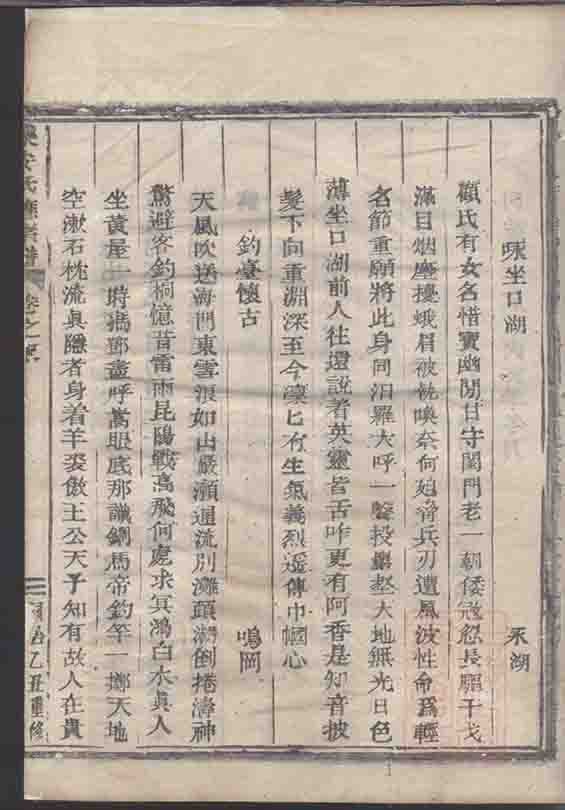 咏坐口湖 禾湖
顧氏有女名惜寶幽閒甘守閨門老一朝倭冦忽長驅干戈
滿目烟塵擾蛾眉被執喚奈何如脅兵刃遭風波性命爲輕
名節重願將此身同汨羅大呼一聲投黑壑大地無光日色
薄坐口湖前人往還說者英靈皆舌咋更有阿香是知音披
髮下向重淵深至今凛匕有生氣義烈遥傳巾幗心
釣臺懷古 鳴岡
天風吹送海門東雪浪如山嚴瀨通流別灘頭潮倒捲濤神
驚避客釣桐憶昔雷雨昆陽戰高飛何處求冥鴻白水眞人
坐黃屋一時馮鄧盡呼嵩眼底那識銅馬帝釣竿一擲天地
空漱石枕流眞隱者身着羊裘傲王公天子知有故人在貴
安氏族譜 卷之
同治乙丑重修